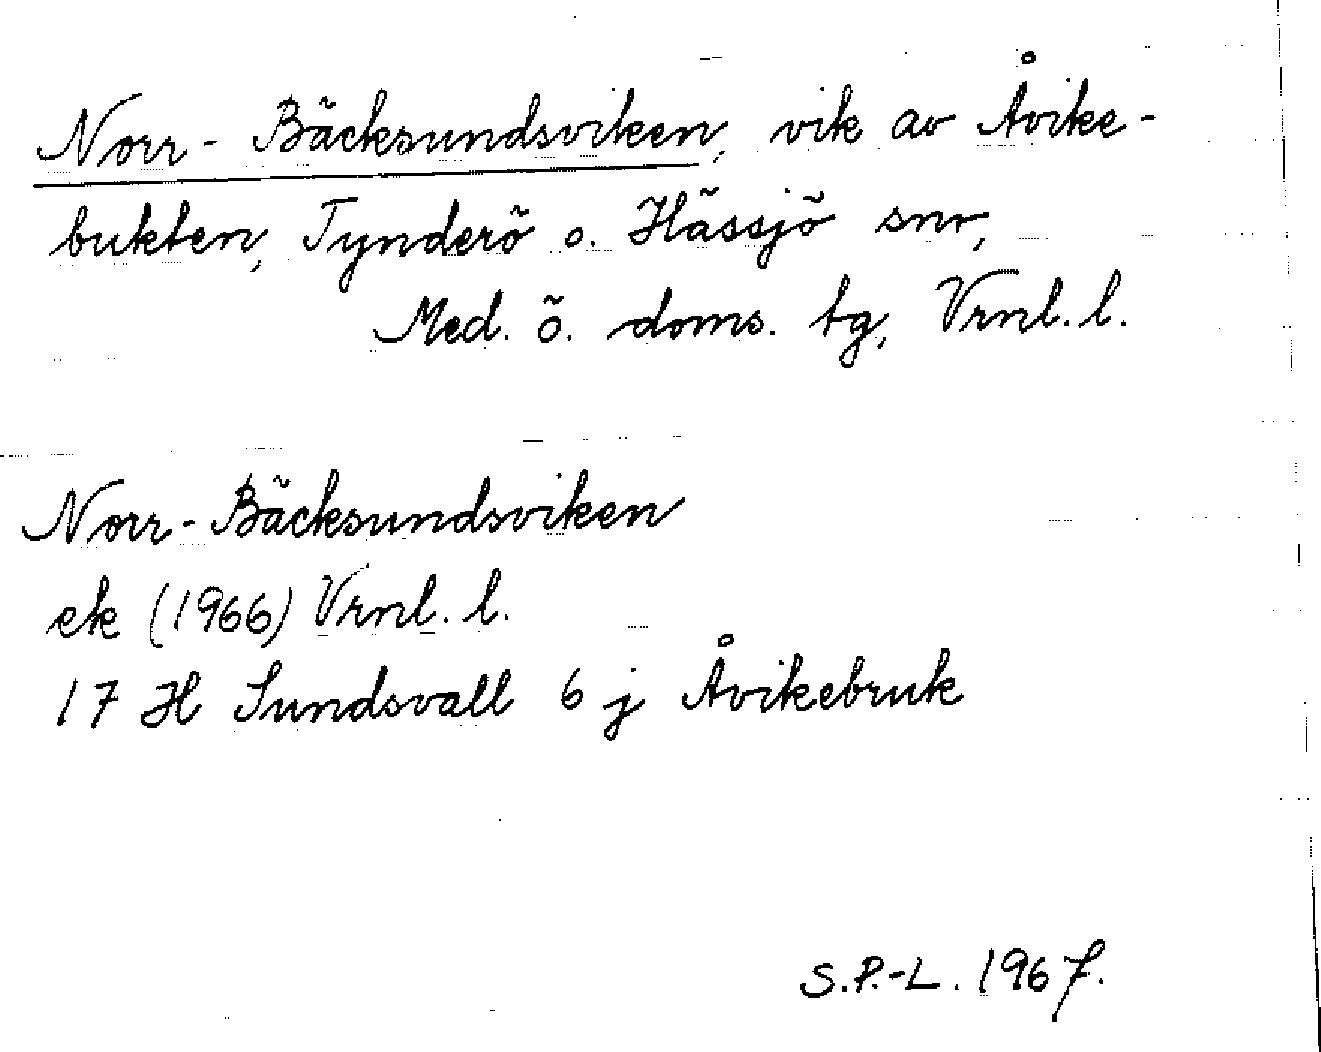 Norr-Bäcksundsviken, vik av Åvike-
bukten, Tynderö o. Hässjö snr,
Med. ö. doms. tg, Vrnl. l.
Norr-Bäcksundsviken
ek (1966) Vrnl. l.
17 H Sundsvall 6 j Åvikebruk
S.P.-L. 1967.